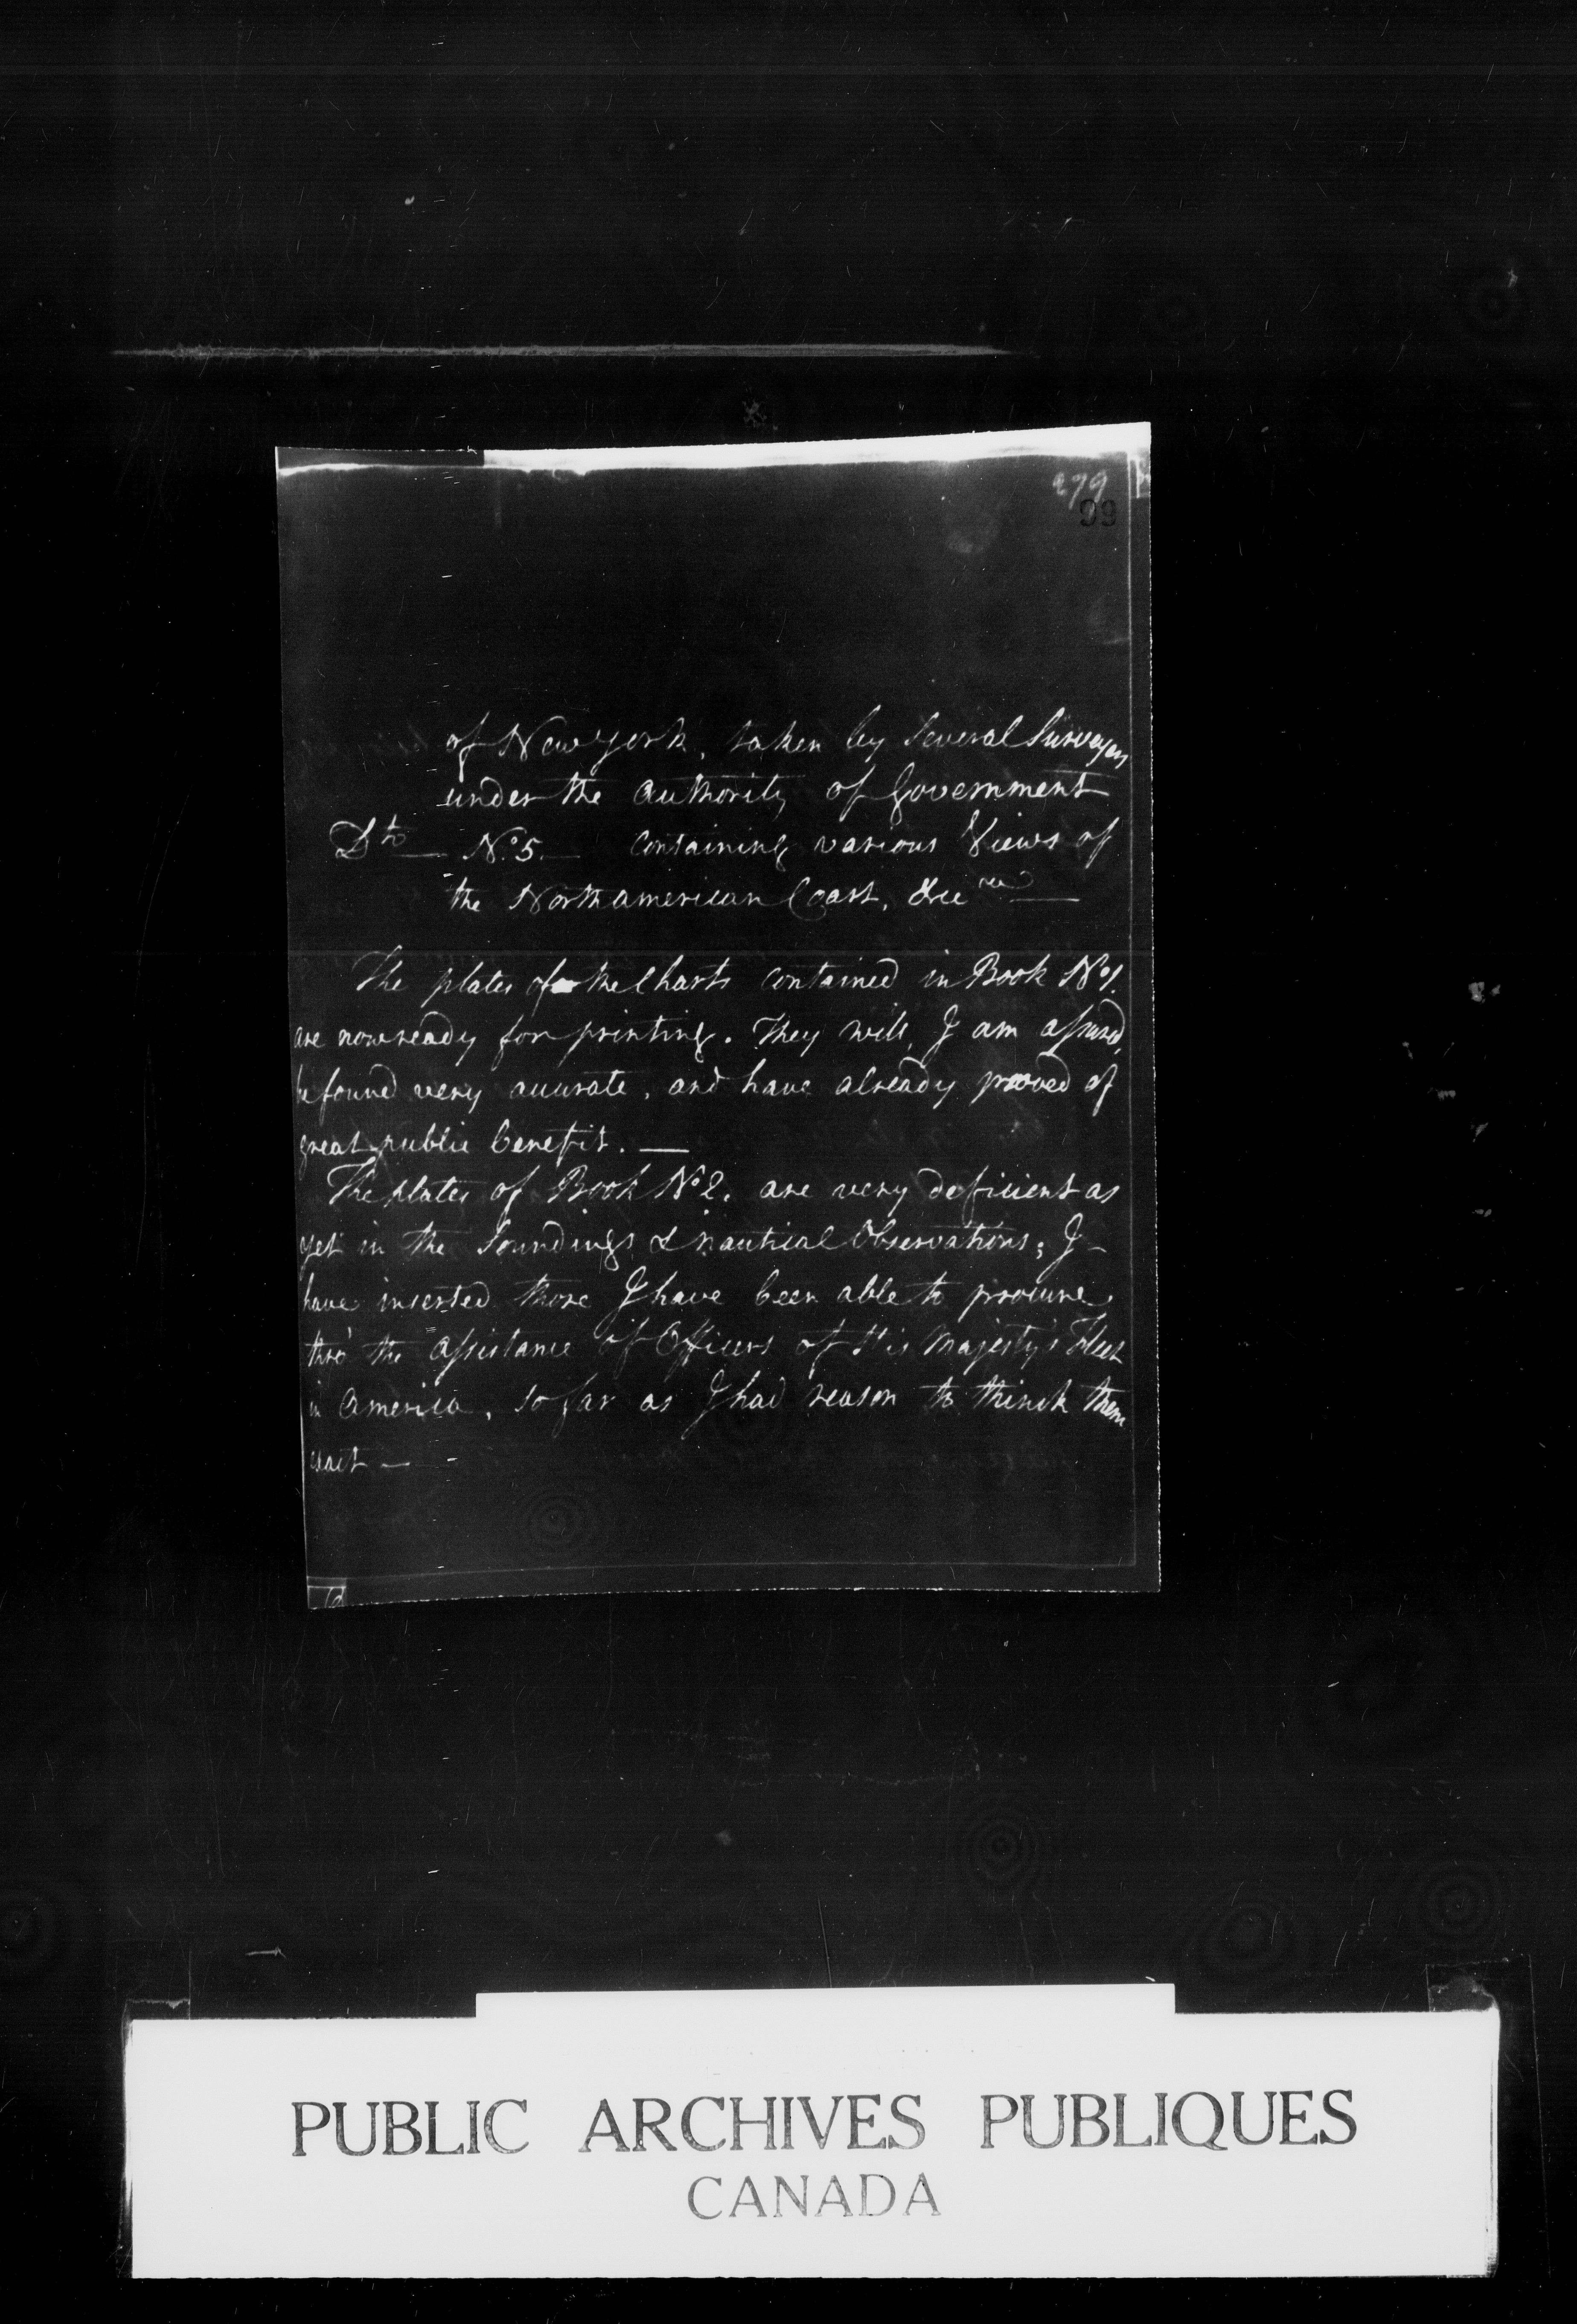 279
99
of New york, taken by Several Surveyors
under the authority of Government
Dto — No. 5. — Containing various Views of
the Northamerican Coast, &ca —
The plates of the Charts contained in Book No 1.
are now ready for printing. They will, I am assured,
be found very accurate, and have already prooved of
great public benefit. —
The plates of Book No 2. are very deficient as
yet in the Soundings & nautical Observations; I
have inserted those I have been able to procure
thro' the assistance of Officers of His Majesty's Fleet
in America, so far as I had reason to think them
exact —
PUBLIC ARCHIVES PUBLIQUES
CANADA